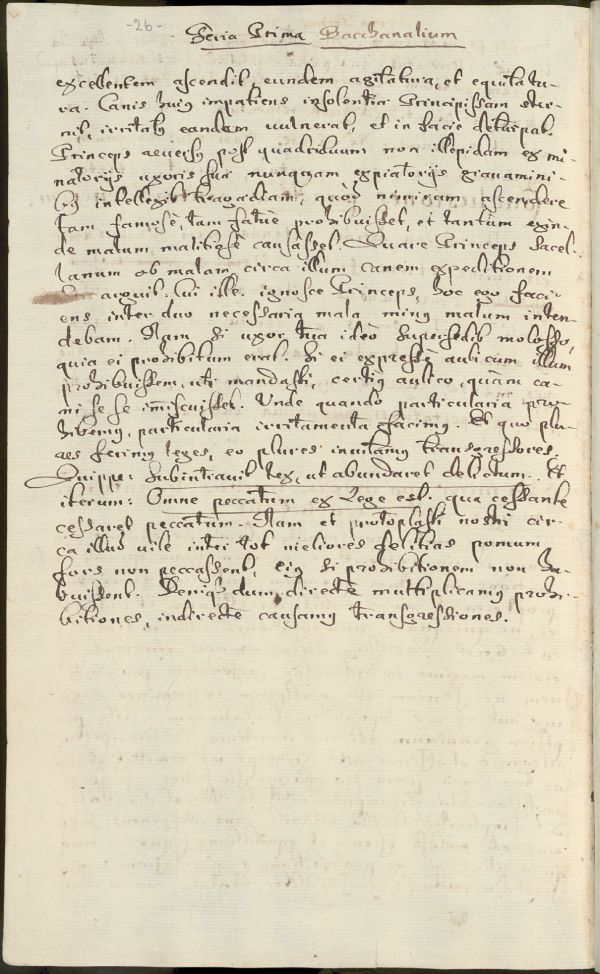 -26-
Feria Prima Bacchanalium
excellentem ascendit, eundem agitatura, et equitatu-
ra. Canis huius impatiens insolentiæ Principissam ster-
nit, irritatus eandem vulnerat, et in facie deturpat.
Princeps reversus post quadriduum non illepidam ex mi-
natorijs uxoris suæ nunquam expiatorijs gravamini-
bus intellexit tragædiam, quòd nimirum ascendere
tam famosè, tam fatuè prohibuisset, et tantum exin-
de malum malitiosè causasset. Quare Princeps Sacel-
lanum ob malam circa illum canem expeditionem
arguit. Cui ille. ignosce Princeps, hoc ego faci-
ens, inter duo necessaria mala minus malum inten-
debam. Nam si uxor tua ideò supersedit molosso,
quia ei prohibitum erat. Si ei expressè aulicum illum
prohibuissem, uti mandasti, certius aulico, quàm ca-
ni se se immiscuisset. Unde quando particularia pro-
hibemus, particularia irritamenta facimus. Et quo plu-
res ferimus leges, eo plures invitamus transgressores.
Quippe: Subintravit lex, ut abundaret delictum. Et
iterum: Omne peccatum ex Lege est. qua cessante
cessaret peccatum. Nam et protoplasti nostri cir-
ca illud vile inter tot meliores delitias pomum
fors non peccassent, ejus si prohibitionem non ha-
buissent. Denique dum directè multiplicamus prohi-
bitiones, indirectè causamus transgressiones.